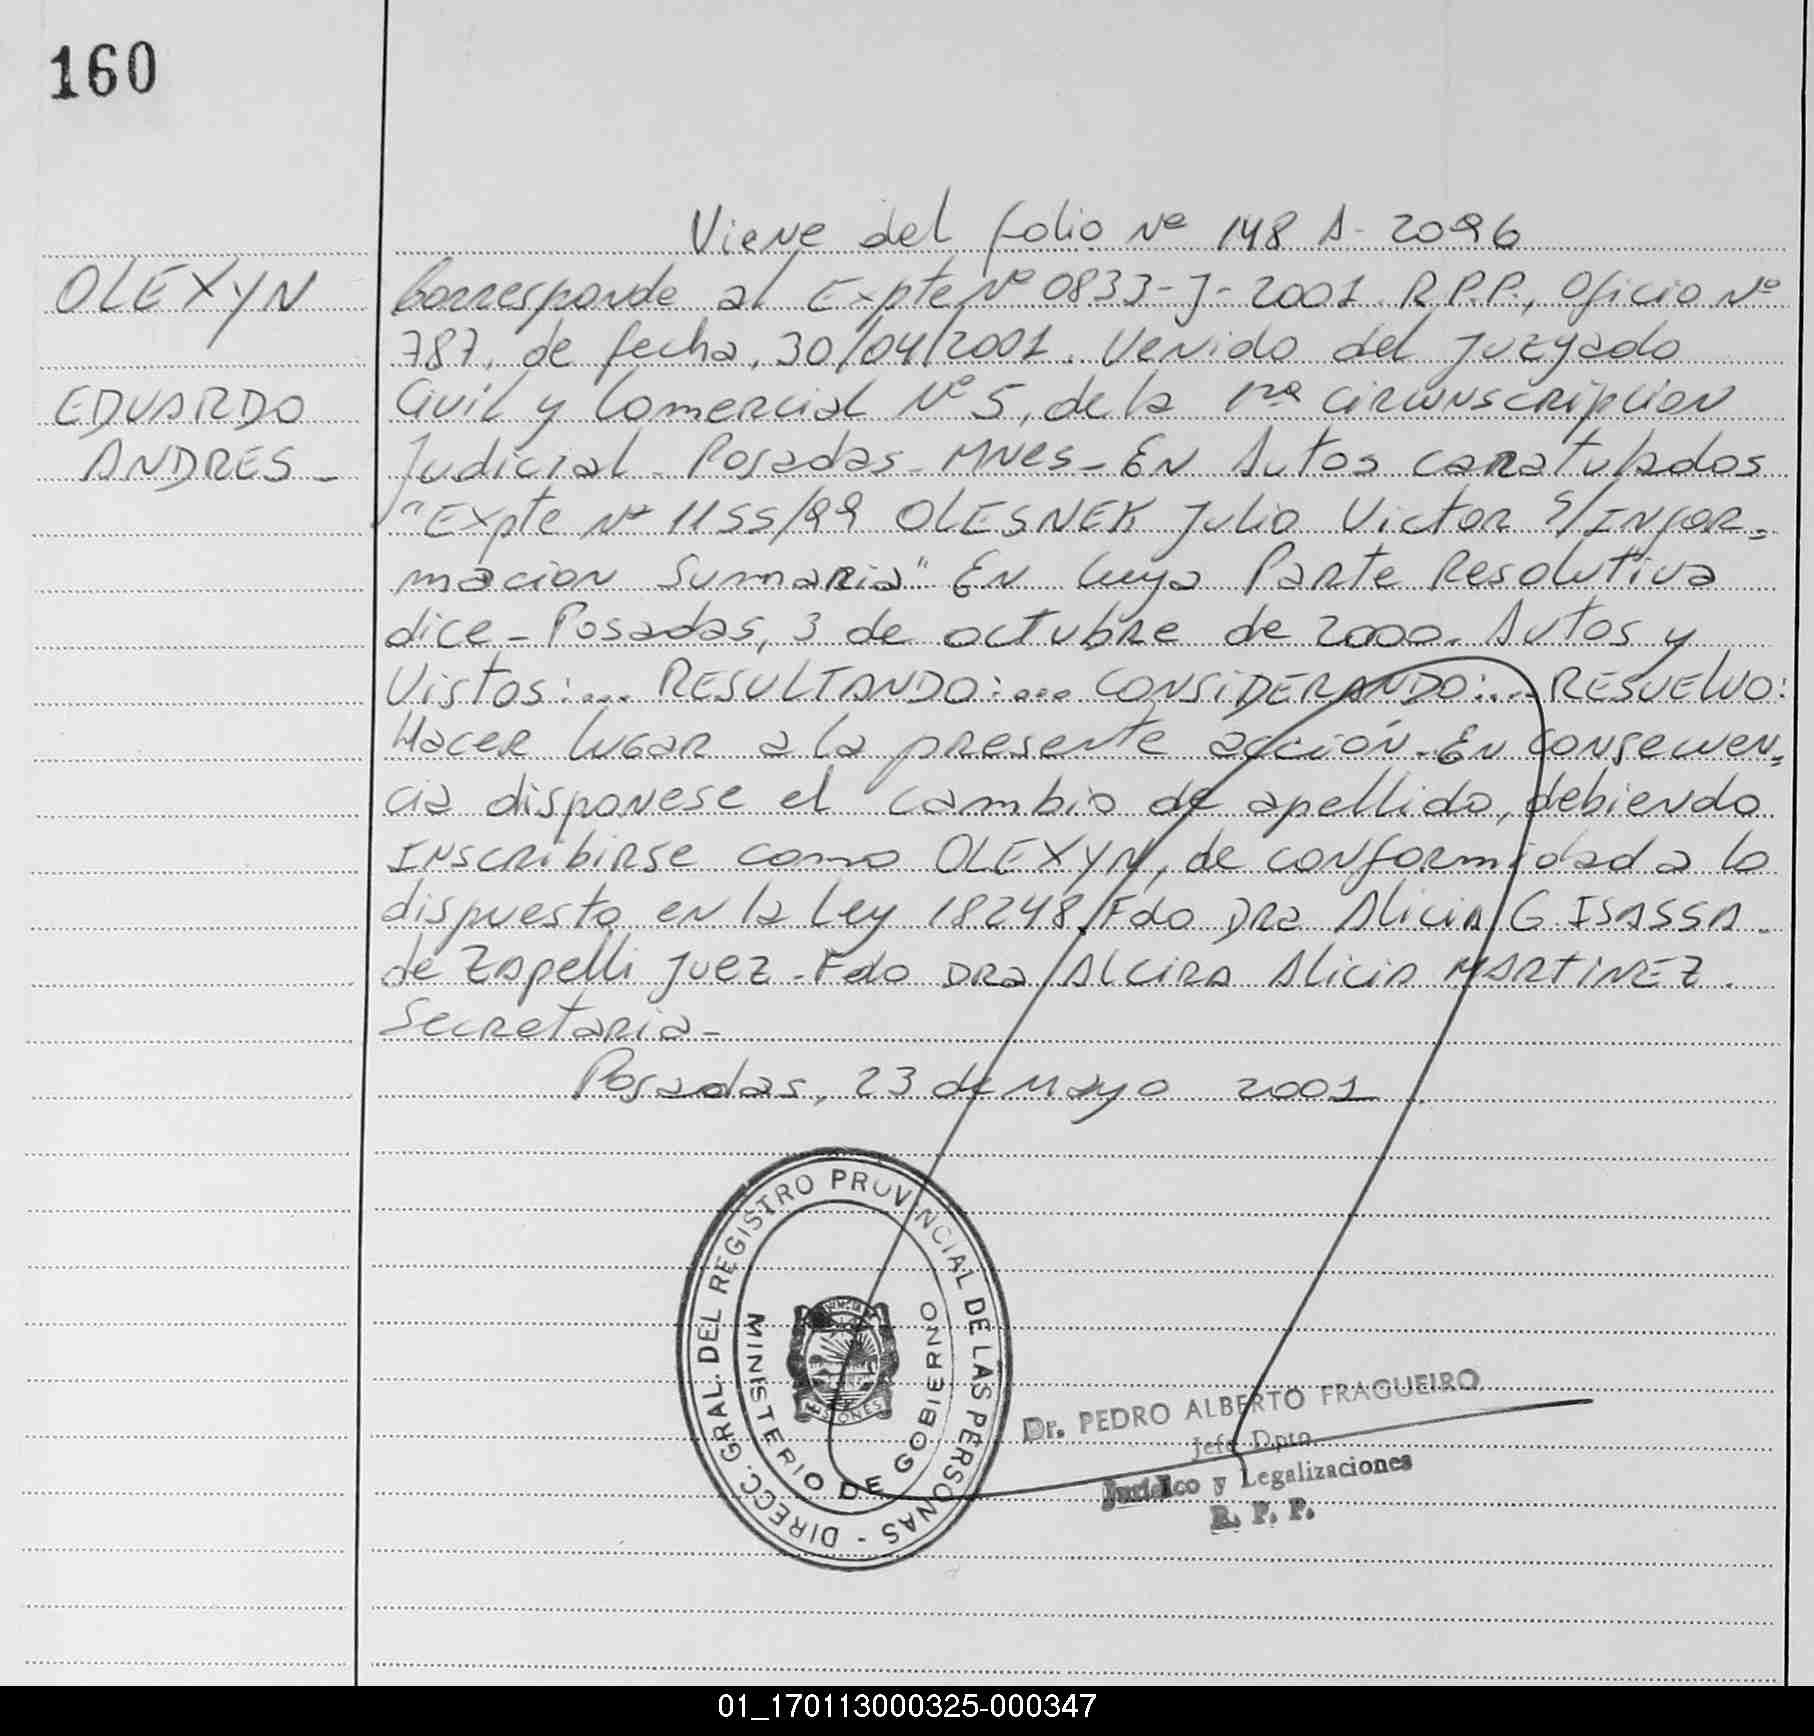 160
Viene del folio Nº 148 A- 2096
OLEXYN
EDUARDO
ANDRES -
Corresponde al Expte Nº 0833-J-2001. R.P.P., Oficio Nº
787, de fecha, 30/04/2001. Venido del Juzgado
Civil y Comercial Nº 5, de la 1ra circunscripcion
Judicial - Posadas - Mnes - En Autos caratulados
"Expte Nº 1155/99 OLESNEK Julio Victor S/INfor=
macion Sumaria" En Cuya Parte Resolutiva
dice - Posadas, 3 de octubre de 2000. Autos y
Vistos:.... RESULTANDO:.... CONSIDERANDO:.... RESUELVO:
Hacer lugar a la presente acción. En consecuen=
cia disponese el cambio de apellido, debiendo
inscribirse como OLEXYN, de conformidad a lo
dispuesto en la Ley 18248. Fdo Dra Alicia G ISASSA.
de Zapelli Juez - Fdo DRA Alcira Alicia MARTINEZ.
Secretaria -
Posadas, 23 de Mayo 2001
DIRECC. GRAL. DEL REGISTRO PROVINCIAL DE LAS PERSONAS -
MINISTERIO DE GOBIERNO
Dr. PEDRO ALBERTO FRAGUEIRO
Jefe Dpto.
Jurídico y Legalizaciones
R. P. P.
01_170113000325-000347